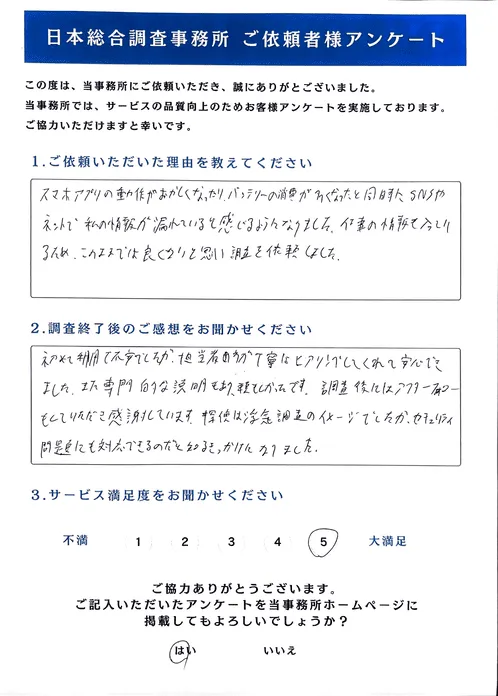 日本総合調査事務所 ご依頼者様アンケート
この度は、当事務所にご依頼いただき、誠にありがとうございました。
当事務所では、サービスの品質向上のためお客様アンケートを実施しております。
ご協力いただけますと幸いです。
1.ご依頼いただいた理由を教えてください
スマホアプリの動作がおかしくなったり、バッテリーの消費が早くなったと同時に SNSや
ネットで私の情報が漏れていると感じるようになりました。仕事の情報も入っている
るため、このままでは良くないと思い調査を依頼しました。
2.調査終了後のご感想をお聞かせください
初めて利用で不安でしたが、担当者の方が丁寧にヒアリングしてくれて安心でき
ました。また専門的な説明も頼もしかったです。調査後にはアフターフォロー
もしていただき感謝しています。探偵は浮気調査のイメージでしたが、セキュリティ
問題にも対応できるのだと知るきっかけになりました。
3.サービス満足度をお聞かせください
不満 1 2 3 4 5 大満足
ご協力ありがとうございます。
ご記入いただいたアンケートを当事務所ホームページに
掲載してもよろしいでしょうか？
はい いいえ